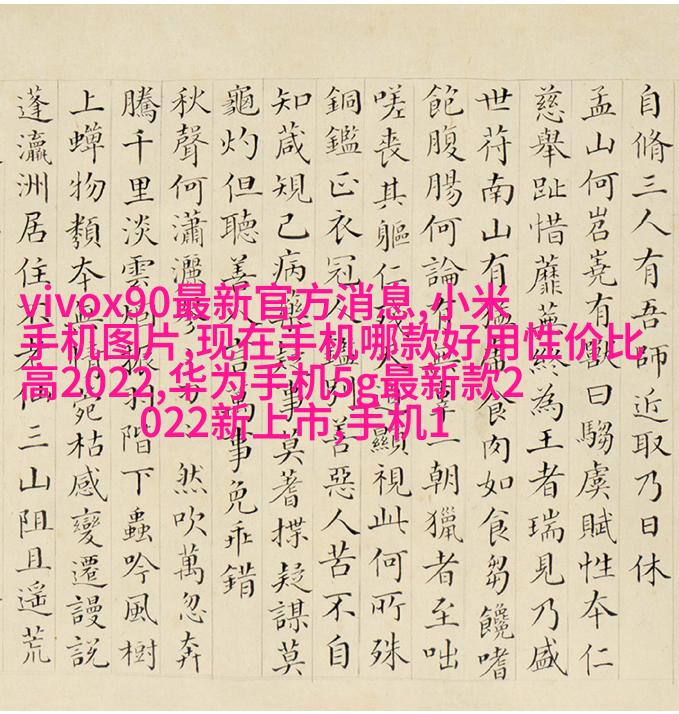 自脩三人有吾師近取乃日休
孟山何岧嶤有獸曰騶虞賦性本仁
慈舉趾惜蘼蕪終為王者瑞見乃盛
世苻南山有猛虎食肉如食芻饞嗜
飽腹腸何論有無辜一朝獵者至咄
嗟喪其軀仁顯視此何所殊
銅鑑正衣冠人鑑別善惡人苦不自
知葴規己病藥疑事莫蓍揲疑謀莫
龜灼但聽善人言萬事免乖錯
秋聲何瀟灑然吹萬忽奔
騰千里淡雲階下蟲吟風樹
上蟬物類本無情菀枯感變遷謾説
蓬瀛洲居住不老仙三山阻且遥荒
vivox90最新官方消息,小米
手机图片,现在手机哪款好用性价比
高2022,华为手机5g最新款2
022新上市,手机1